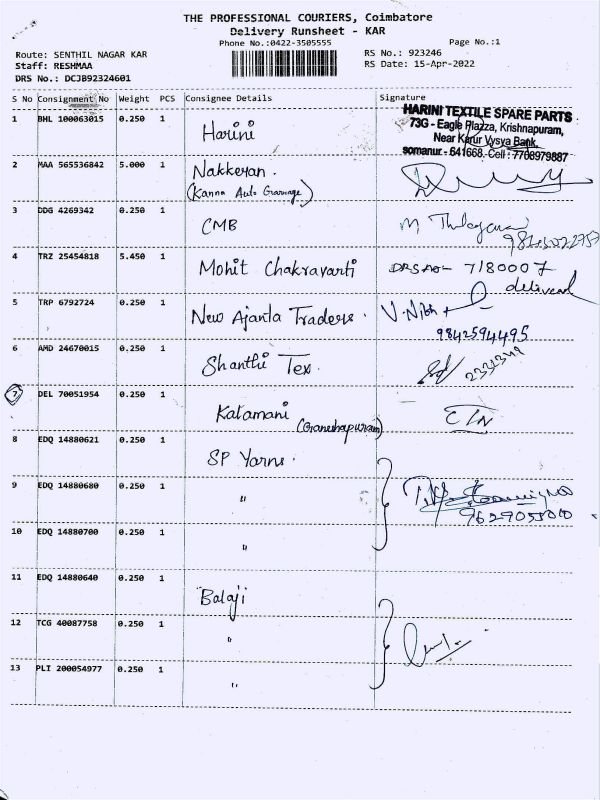 THE PROFESSIONAL COURIERS, Coimbatore
Delivery Runsheet - KAR
Phone No.:0422-3505555
Page No.:1
Route: SENTHIL NAGAR KAR
RS No.: 923246
Staff: RESHMAA
RS Date: 15-Apr-2022
DRS No.: DCJB92324601
S No Consignment No Weight PCS Consignee Details Signature
1 BHL 100063015 0.250 1 Harini
HARINI TEXTILE SPARE PARTS
73G - Eagle Plazza, Krishnapuram,
Near Karur Vysya Bank,
somanur - 641668. Cell : 7708979887
2 MAA 565536842 5.000 1 Nakkeran.
(Kanna Auto Garage)
3 DDG 4269342 0.250 1 CMB
4 TRZ 25454818 5.450 1 Mohit Chakravarti
7180007
delivered
5 TRP 6792724 0.250 1 New Ajanta Traders.
9842594495
6 AMD 24670015 0.250 1 Shanthi Tex.
7 DEL 70051954 0.250 1 Kalamani
(Ganeshapuram)
8 EDQ 14880621 0.250 1 SP Yarns.
9 EDQ 14880680 0.250 1 "
10 EDQ 14880700 0.250 1 "
11 EDQ 14880640 0.250 1 Balaji
12 TCG 40087758 0.250 1 "
13 PLI 200054977 0.250 1 "